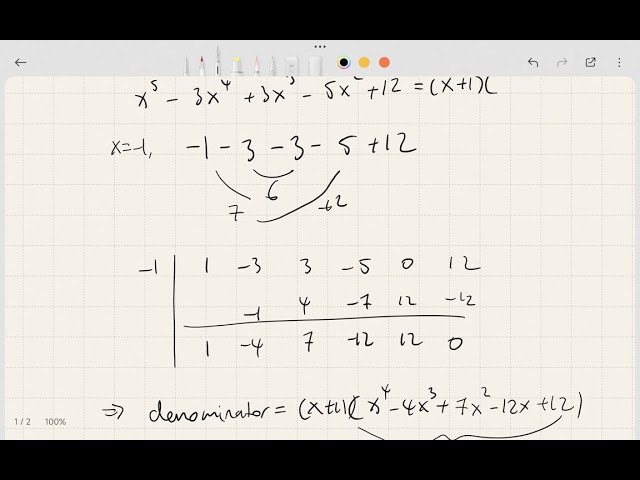 x⁵ - 3x⁴ + 3x³ - 5x² + 12 = (x+1)(
x=-1, -1 - 3 - 3 - 5 + 12
-6
7 -12
-1 1 -3 3 -5 0 12
-1 4 -7 12 -12
1 -4 7 -12 12 0
⇒ denominator = (x+1)(x⁴-4x³+7x²-12x+12)
1 / 2 100%